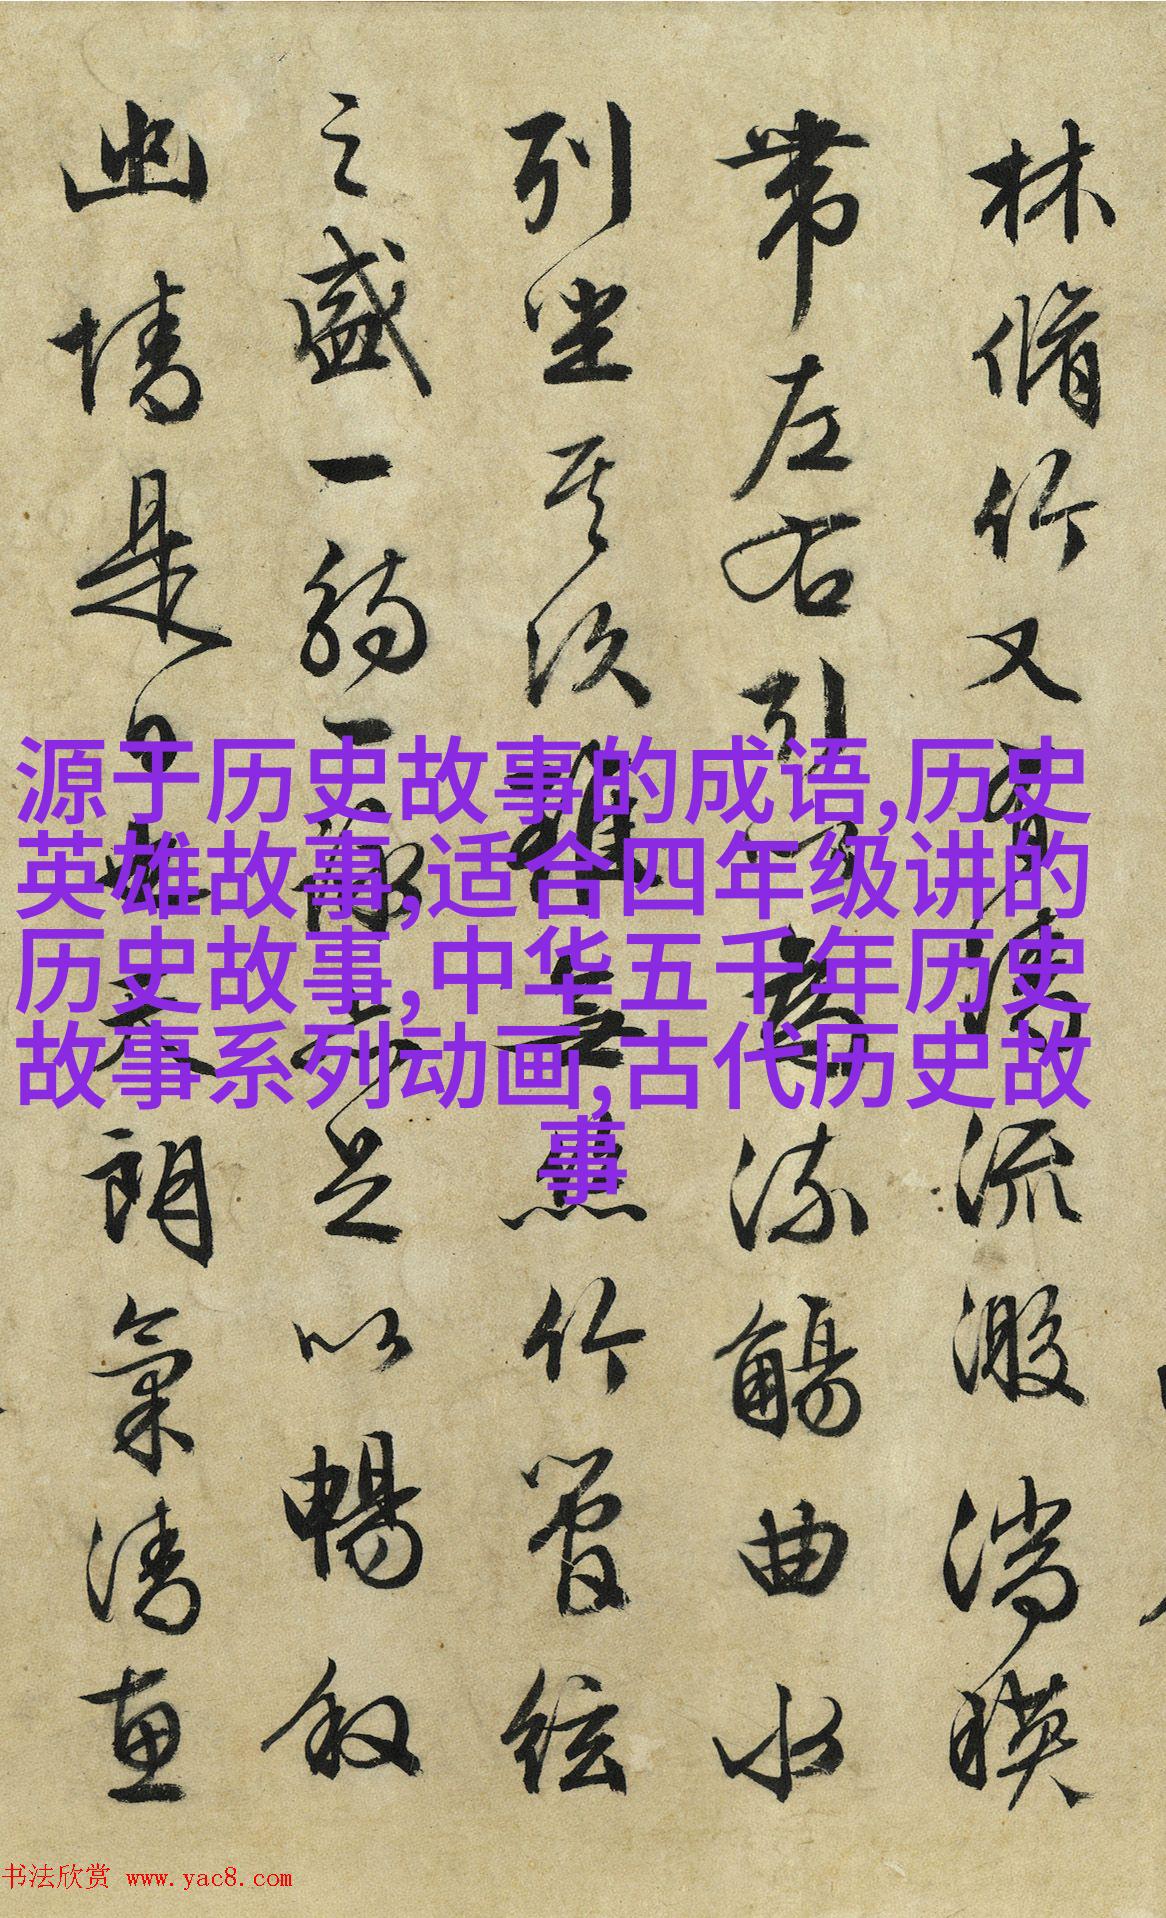 林脩竹又有清流激湍暎
帶左右引以為流觴曲水
列坐其次雖無絲竹管絃
之盛一觴一詠亦足以暢叙
幽情是日也天朗氣清惠
源于历史故事的成语,历史
英雄故事,适合四年级讲的
历史故事,中华五千年历史
故事系列动画,古代历史故
事
书法欣赏 www.yac8.com